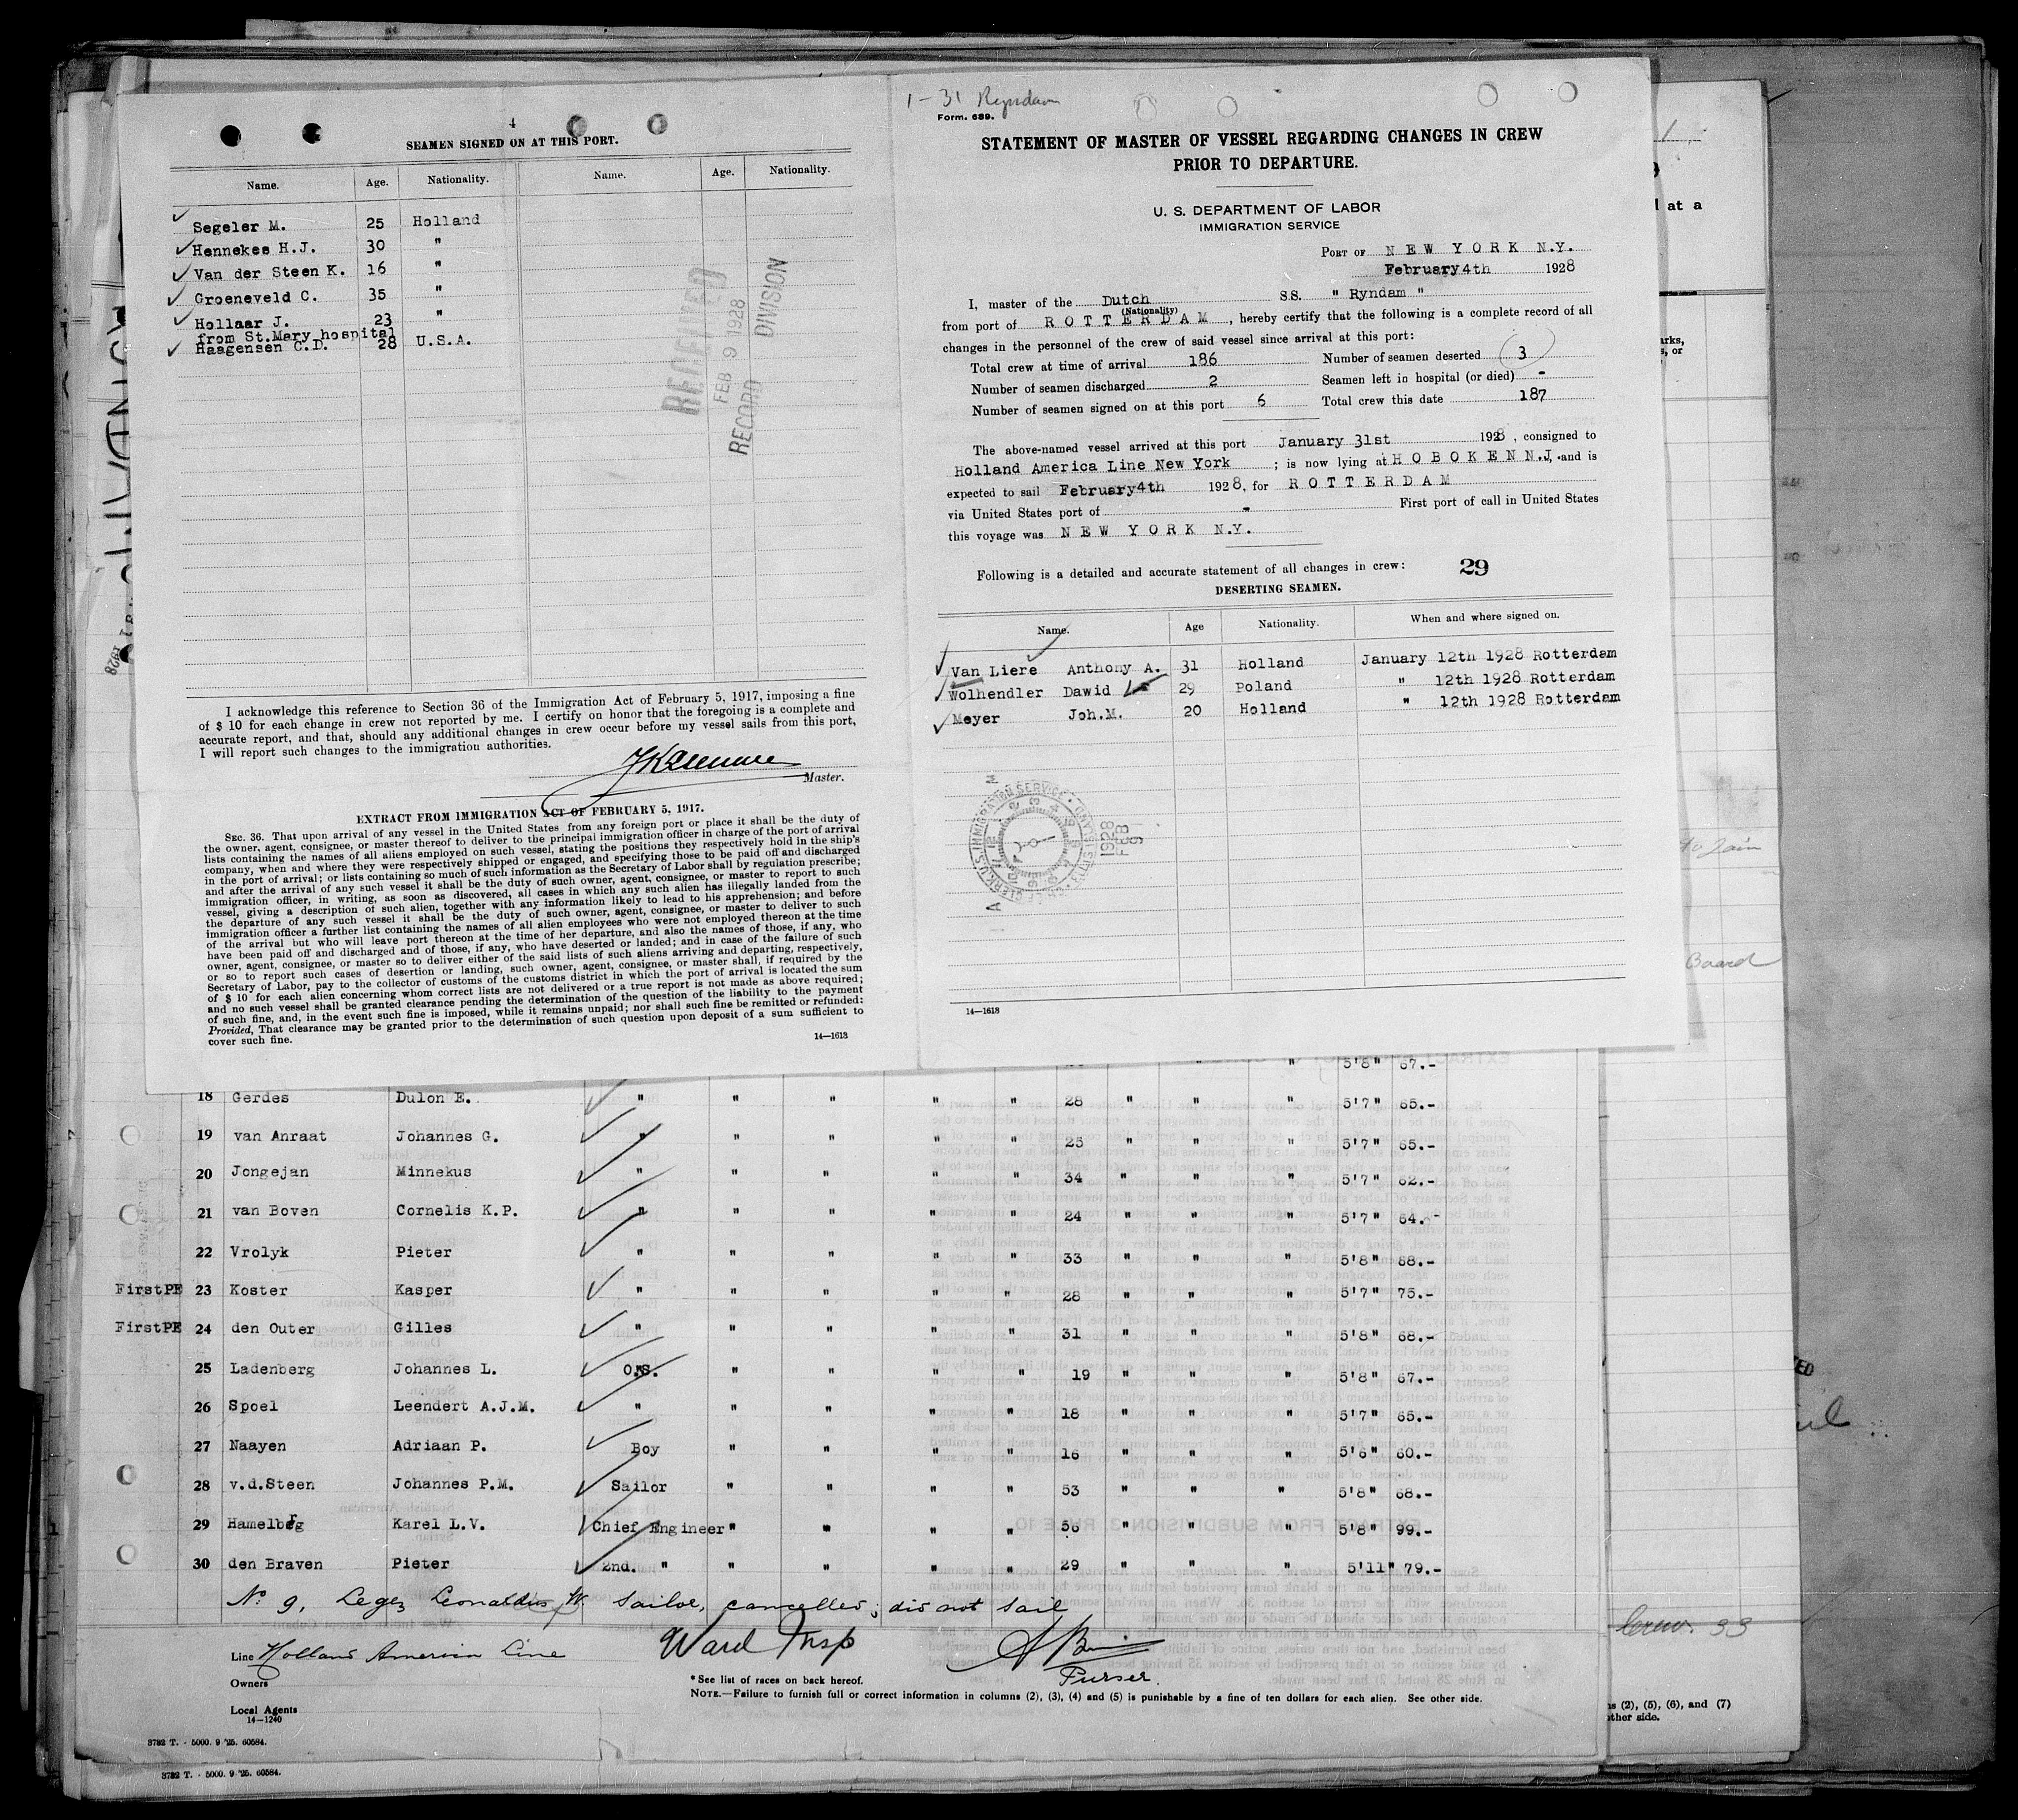 4
SEAMEN SIGNED ON AT THIS PORT.
Name. Age. Nationality. Name. Age. Nationality.
Segeler M. 25 Holland
Hennekes H.J. 30 "
Van der Steen K. 16 "
Groeneveld C. 35 "
Hollaar J. 23 "
from St.Mary hospital
Haagensen C.D. 28 U.S.A.
RECEIVED
FEB 9 1928
RECORD DIVISION
I acknowledge this reference to Section 36 of the Immigration Act of February 5, 1917, imposing a fine
of $ 10 for each change in crew not reported by me. I certify on honor that the foregoing is a complete and
accurate report, and that, should any additional changes in crew occur before my vessel sails from this port,
I will report such changes to the immigration authorities.
Master.
EXTRACT FROM IMMIGRATION ACT OF FEBRUARY 5, 1917.
SEC. 36. That upon arrival of any vessel in the United States from any foreign port or place it shall be the duty of
the owner, agent, consignee, or master thereof to deliver to the principal immigration officer in charge of the port of arrival
lists containing the names of all aliens employed on such vessel, stating the positions they respectively hold in the ship's
company, when and where they were respectively shipped or engaged, and specifying those to be paid off and discharged
in the port of arrival; or lists containing so much of such information as the Secretary of Labor shall by regulation prescribe;
and after the arrival of any such vessel it shall be the duty of such owner, agent, consignee, or master to report to such
immigration officer, in writing, as soon as discovered, all cases in which any such alien has illegally landed from the
vessel, giving a description of such alien, together with any information likely to lead to his apprehension; and before
the departure of any such vessel it shall be the duty of such owner, agent, consignee, or master to deliver to such
immigration officer a further list containing the names of all alien employees who were not employed thereon at the time
of the arrival but who will leave port thereon at the time of her departure, and also the names of those, if any, who
have been paid off and discharged and of those, if any, who have deserted or landed; and in case of the failure of such
owner, agent, consignee, or master so to deliver either of the said lists of such aliens arriving and departing, respectively,
or so to report such cases of desertion or landing, such owner, agent, consignee, or master shall, if required by the
Secretary of Labor, pay to the collector of customs of the customs district in which the port of arrival is located the sum
of $ 10 for each alien concerning whom correct lists are not delivered or a true report is not made as above required;
and no such vessel shall be granted clearance pending the determination of the question of the liability to the payment
of such fine, and, in the event such fine is imposed, while it remains unpaid; nor shall such fine be remitted or refunded:
Provided, That clearance may be granted prior to the determination of such question upon deposit of a sum sufficient to
cover such fine.
14—1618
1-31 Ryndam
Form. 689.
STATEMENT OF MASTER OF VESSEL REGARDING CHANGES IN CREW
PRIOR TO DEPARTURE.
U. S. DEPARTMENT OF LABOR
IMMIGRATION SERVICE
PORT OF NEW YORK N.Y.
February 4th 1928
I, master of the Dutch SS. " Ryndam "
(Nationality)
from port of ROTTERDAM, hereby certify that the following is a complete record of all
changes in the personnel of the crew of said vessel since arrival at this port:
Total crew at time of arrival 186 Number of seamen deserted 3
Number of seamen discharged 2 Seamen left in hospital (or died) -
Number of seamen signed on at this port 6 Total crew this date 187
The above-named vessel arrived at this port January 31st 1928, consigned to
Holland America Line New York; is now lying at HOBOKEN N.J, and is
expected to sail February 4th 1928, for ROTTERDAM
via United States port of - First port of call in United States
this voyage was NEW YORK N.Y.
Following is a detailed and accurate statement of all changes in crew: 29
DESERTING SEAMEN.
Name. Age Nationality. When and where signed on.
Van Liere Anthony A. 31 Holland January 12th 1928 Rotterdam
Wolhendler Dawid 29 Poland " 12th 1928 Rotterdam
Meyer Joh.M. 20 Holland " 12th 1928 Rotterdam
U.S. IMMIGRATION SERVICE
1928 FEB 9
14—1618
5'8" 67.-
18 Gerdes Dulon E. " " " " " 28 " " " 5'7" 65.-
19 van Anraat Johannes G. " " " " " 25 " " " 5'7" 65.-
20 Jongejan Minnekus " " " " " 34 " " " 5'7" 62.-
21 van Boven Cornelis K.P. " " " " " 24 " " " 5'7" 64.-
22 Vrolyk Pieter " " " " " 33 " " " 5'8" 68.-
FirstPE 23 Koster Kasper " " " " " 28 " " " 5'7" 75.-
FirstPE 24 den Outer Gilles " " " " " 31 " " " 5'8" 68.-
25 Ladenberg Johannes L. O.S. " " " " 19 " " " 5'8" 67.-
26 Spoel Leendert A.J.M. " " " " " 18 " " " 5'7" 65.-
27 Naayen Adriaan P. Boy " " " " 16 " " " 5'6" 60.-
28 v.d.Steen Johannes P.M. Sailor " " " " 53 " " " 5'8" 68.-
29 Hamelberg Karel L.V. Chief Engineer " " " " 56 " " " 5'8" 99.-
30 den Braven Pieter 2nd. " " " " " 29 " " " 5'11" 79.-
No 9, Leonardus W. Sailor, cancelled; did not sail
Line Holland America Line
Ward Insp
Purser.
Owners
*See list of races on back hereof.
NOTE.—Failure to furnish full or correct information in columns (2), (3), (4) and (5) is punishable by a fine of ten dollars for each alien. See other side.
Local Agents
14—1240
3782 T. - 5000. 9 '25. 60584.
3782 T. - 5000. 9 '25. 60584.
l at a
Board
Crew. 33
(2), (5), (6), and (7)
other side.